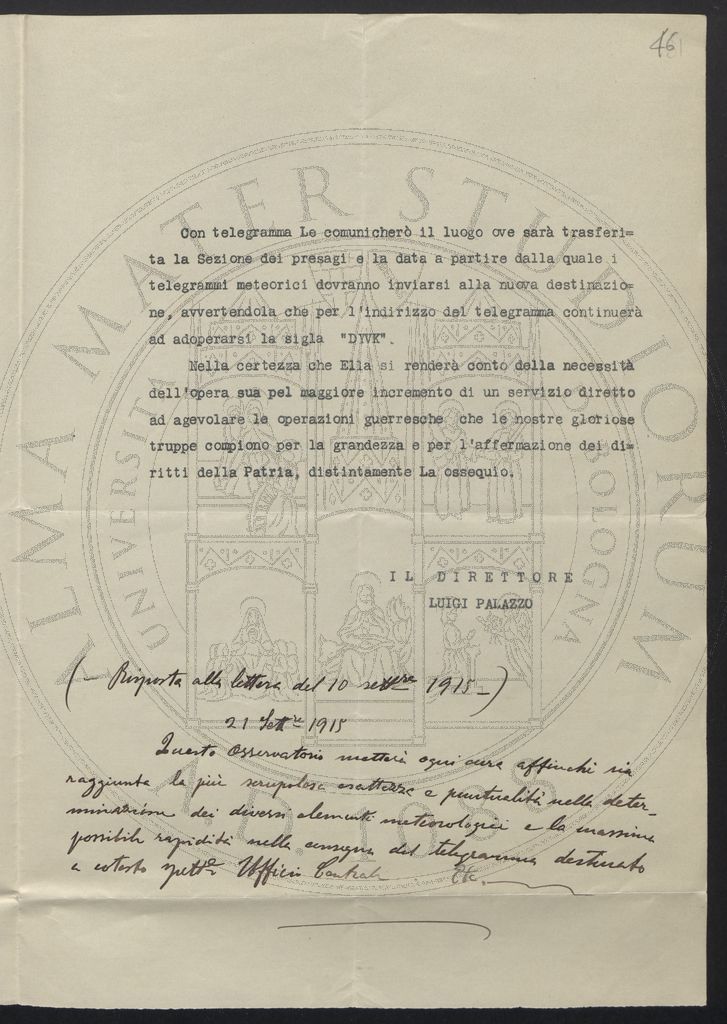 46
Con telegramma Le comunicherò il luogo ove sarà trasferi=
ta la Sezione dei presagi e la data a partire dalla quale i
telegrammi meteorici dovranno inviarsi alla nuova destinazio=
ne, avvertendola che per l'indirizzo del telegramma continuerà
ad adoperarsi la sigla "DIVK".
Nella certezza che Ella si renderà conto della necessità
dell'opera sua pel maggiore incremento di un servizio diretto
ad agevolare le operazioni guerresche che le nostre gloriose
truppe compiono per la grandezza e per l'affermazione dei di=
ritti della Patria, distintamente La ossequio.
IL DIRETTORE
LUIGI PALAZZO
(- Risposta alla lettera del 10 settbre 1915 -)
21 Sette 1915
Questo Osservatorio metterà ogni cura affinchè sia
raggiunta la più scrupolosa esattezza e puntualità nella deter-
minazione dei diversi elementi meteorologici e la massima
possibile rapidità nella consegna del telegramma destinato
a cotesto spett. Ufficio Centrale. Etc.
ALMA MATER STUDIORUM
UNIVERSITÀ BOLOGNA